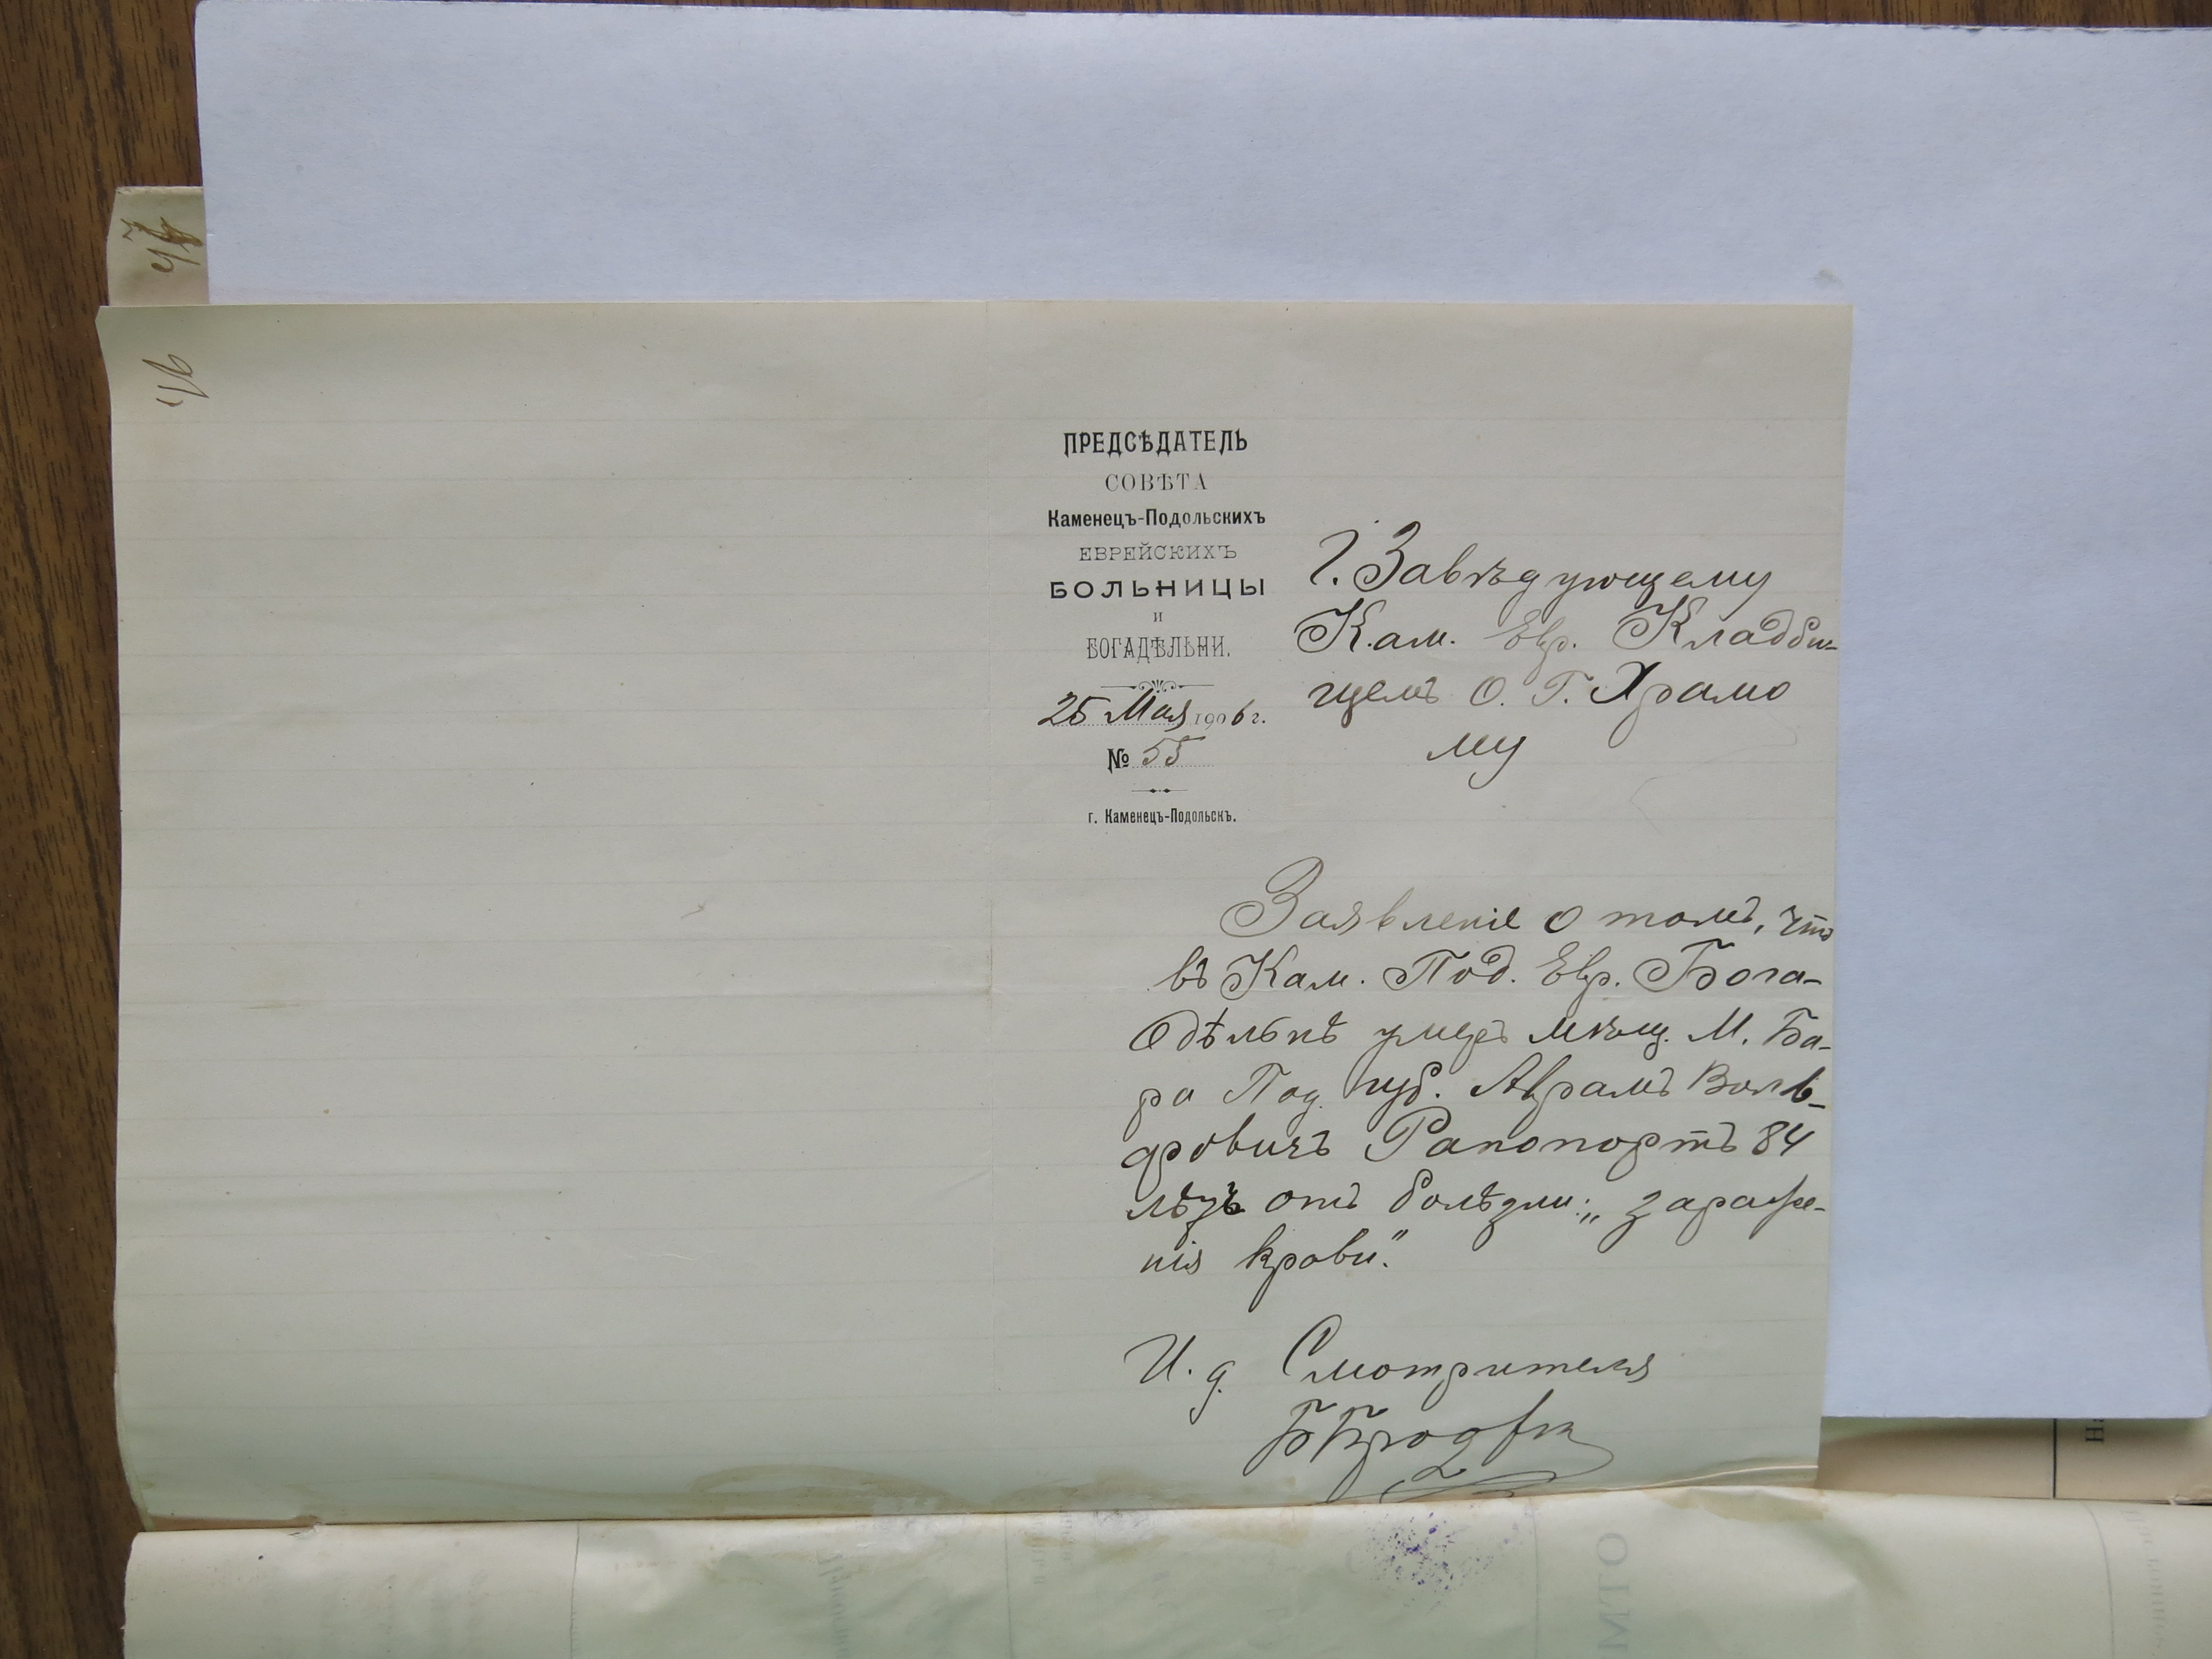 46
ПРЕДСѢДАТЕЛЬ
СОВѢТА
Каменецъ-Подольскихъ
ЕВРЕЙСКИХЪ
БОЛЬНИЦЫ
и
БОГАДѢЛЬНИ.
25 Мая 1906 г.
№ 55
г. Каменецъ-Подольскъ.
Г. Завѣдующему
Кам. Евр. Кладби-
щемъ О. Г. Храмо
му
Заявленіе о томъ, что
въ Кам. Под. Евр. Бога-
дѣльнѣ умеръ мѣщ. М. Ба-
ра Под. губ. Аврамъ Воль-
фовичъ Рапопортъ 84
лѣтъ отъ болѣзни: „зараже-
нія крови".
И. д. Смотрителя